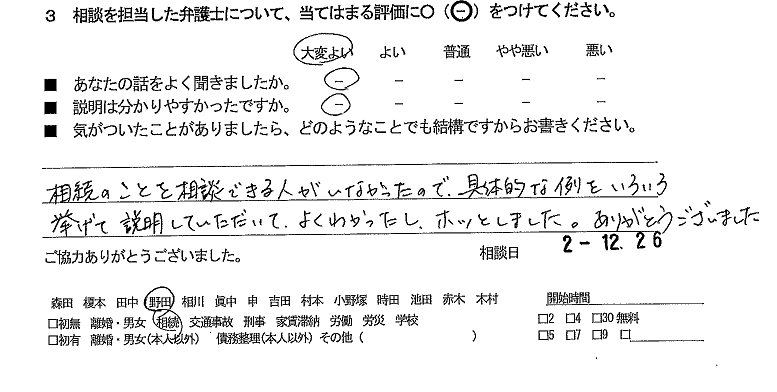 3 相談を担当した弁護士について、当てはまる評価に○（㊀）をつけてください。
大変よい よい 普通 やや悪い 悪い
■ あなたの話をよく聞きましたか。 － － － － －
■ 説明は分かりやすかったですか。 － － － － －
■ 気がついたことがありましたら、どのようなことでも結構ですからお書きください。
相続のことを相談できる人がいなかったので、具体的な例をいろいろ
挙げて説明していただいて、よくわかったし、ホッとしました。ありがとうございました
ご協力ありがとうございました。 相談日 2-12.26
森田 榎本 田中 野田 相川 眞中 申 吉田 村本 小野塚 時田 池田 赤木 木村 開始時間
□初無 離婚・男女 相続 交通事故 刑事 家賃滞納 労働 労災 学校 □2 □4 □30 無料
□初有 離婚・男女(本人以外) 債務整理(本人以外) その他 ( ) □5 □7 □9 □